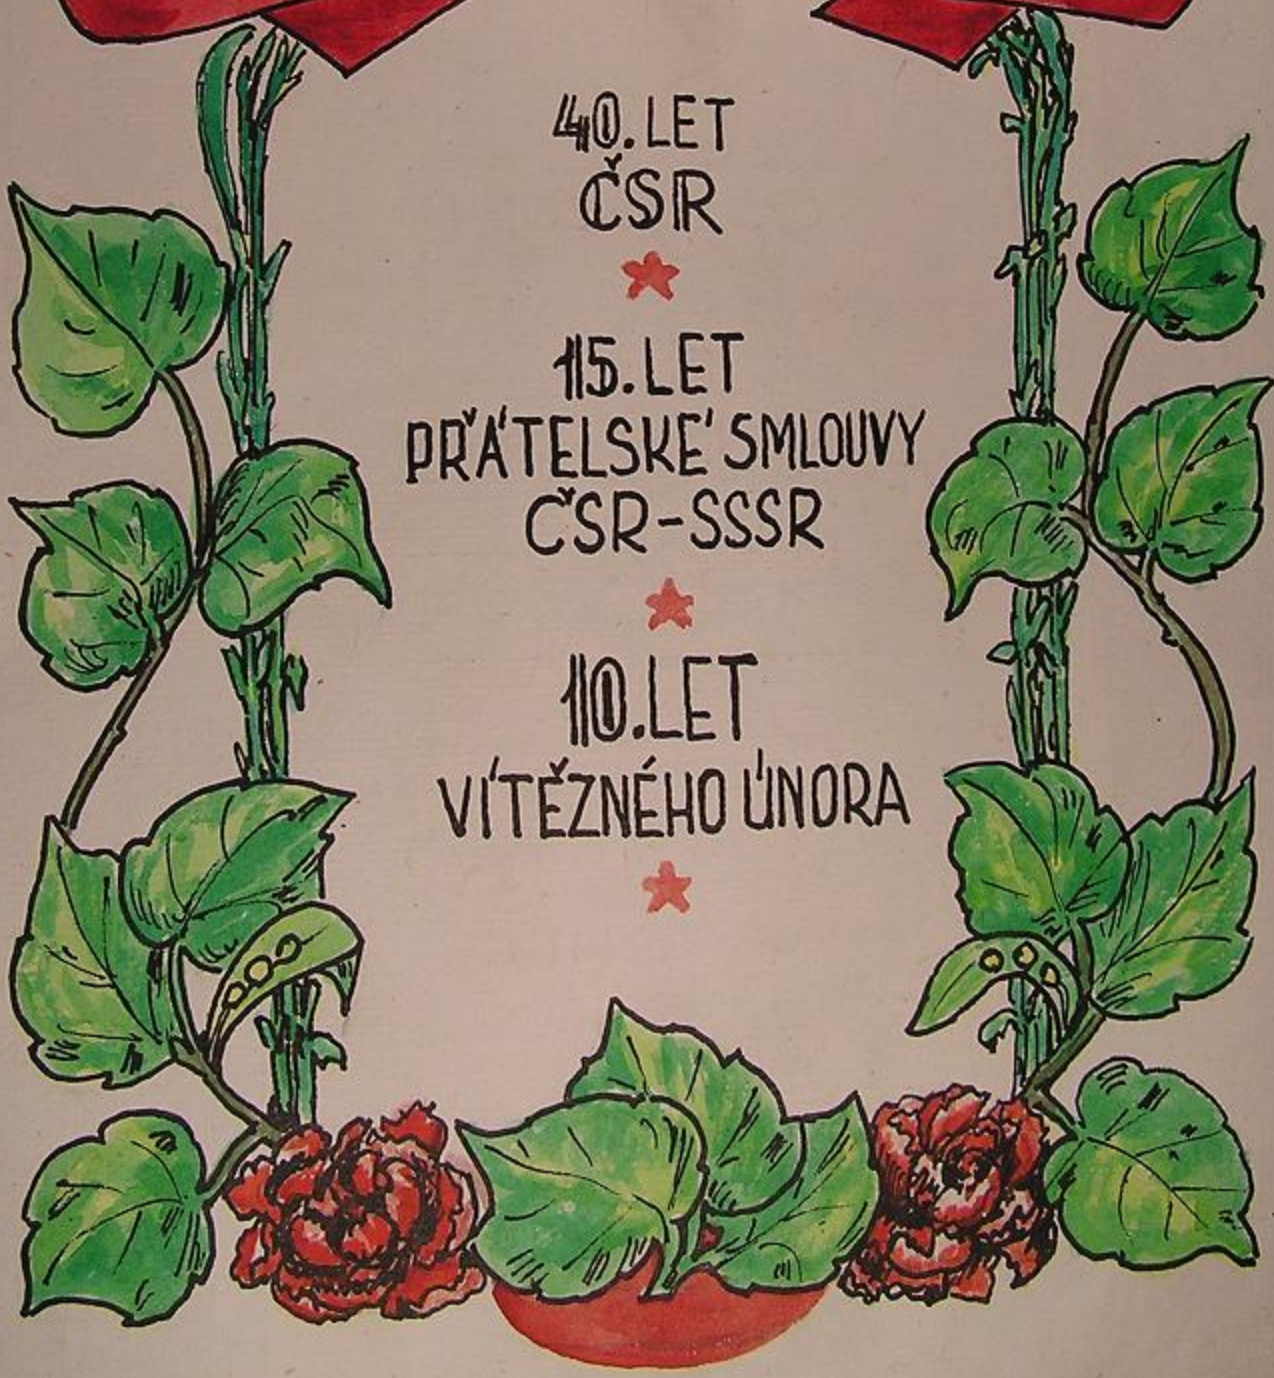 40. LET
ČSR
15. LET
PŘÁTELSKÉ SMLOUVY
ČSR-SSSR
10. LET
VÍTĚZNÉHO ÚNORA